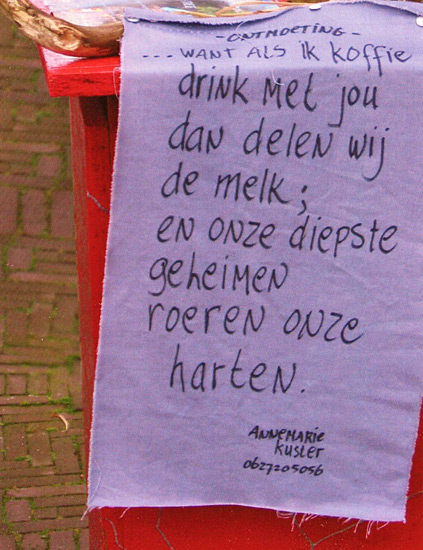 - ONTMOETING -
... WANT ALS ik koffie
drink met jou
dan delen wij
de melk;
en onze diepste
geheimen
roeren onze
harten.
ANNEMARIE
KUSLER
0627205056